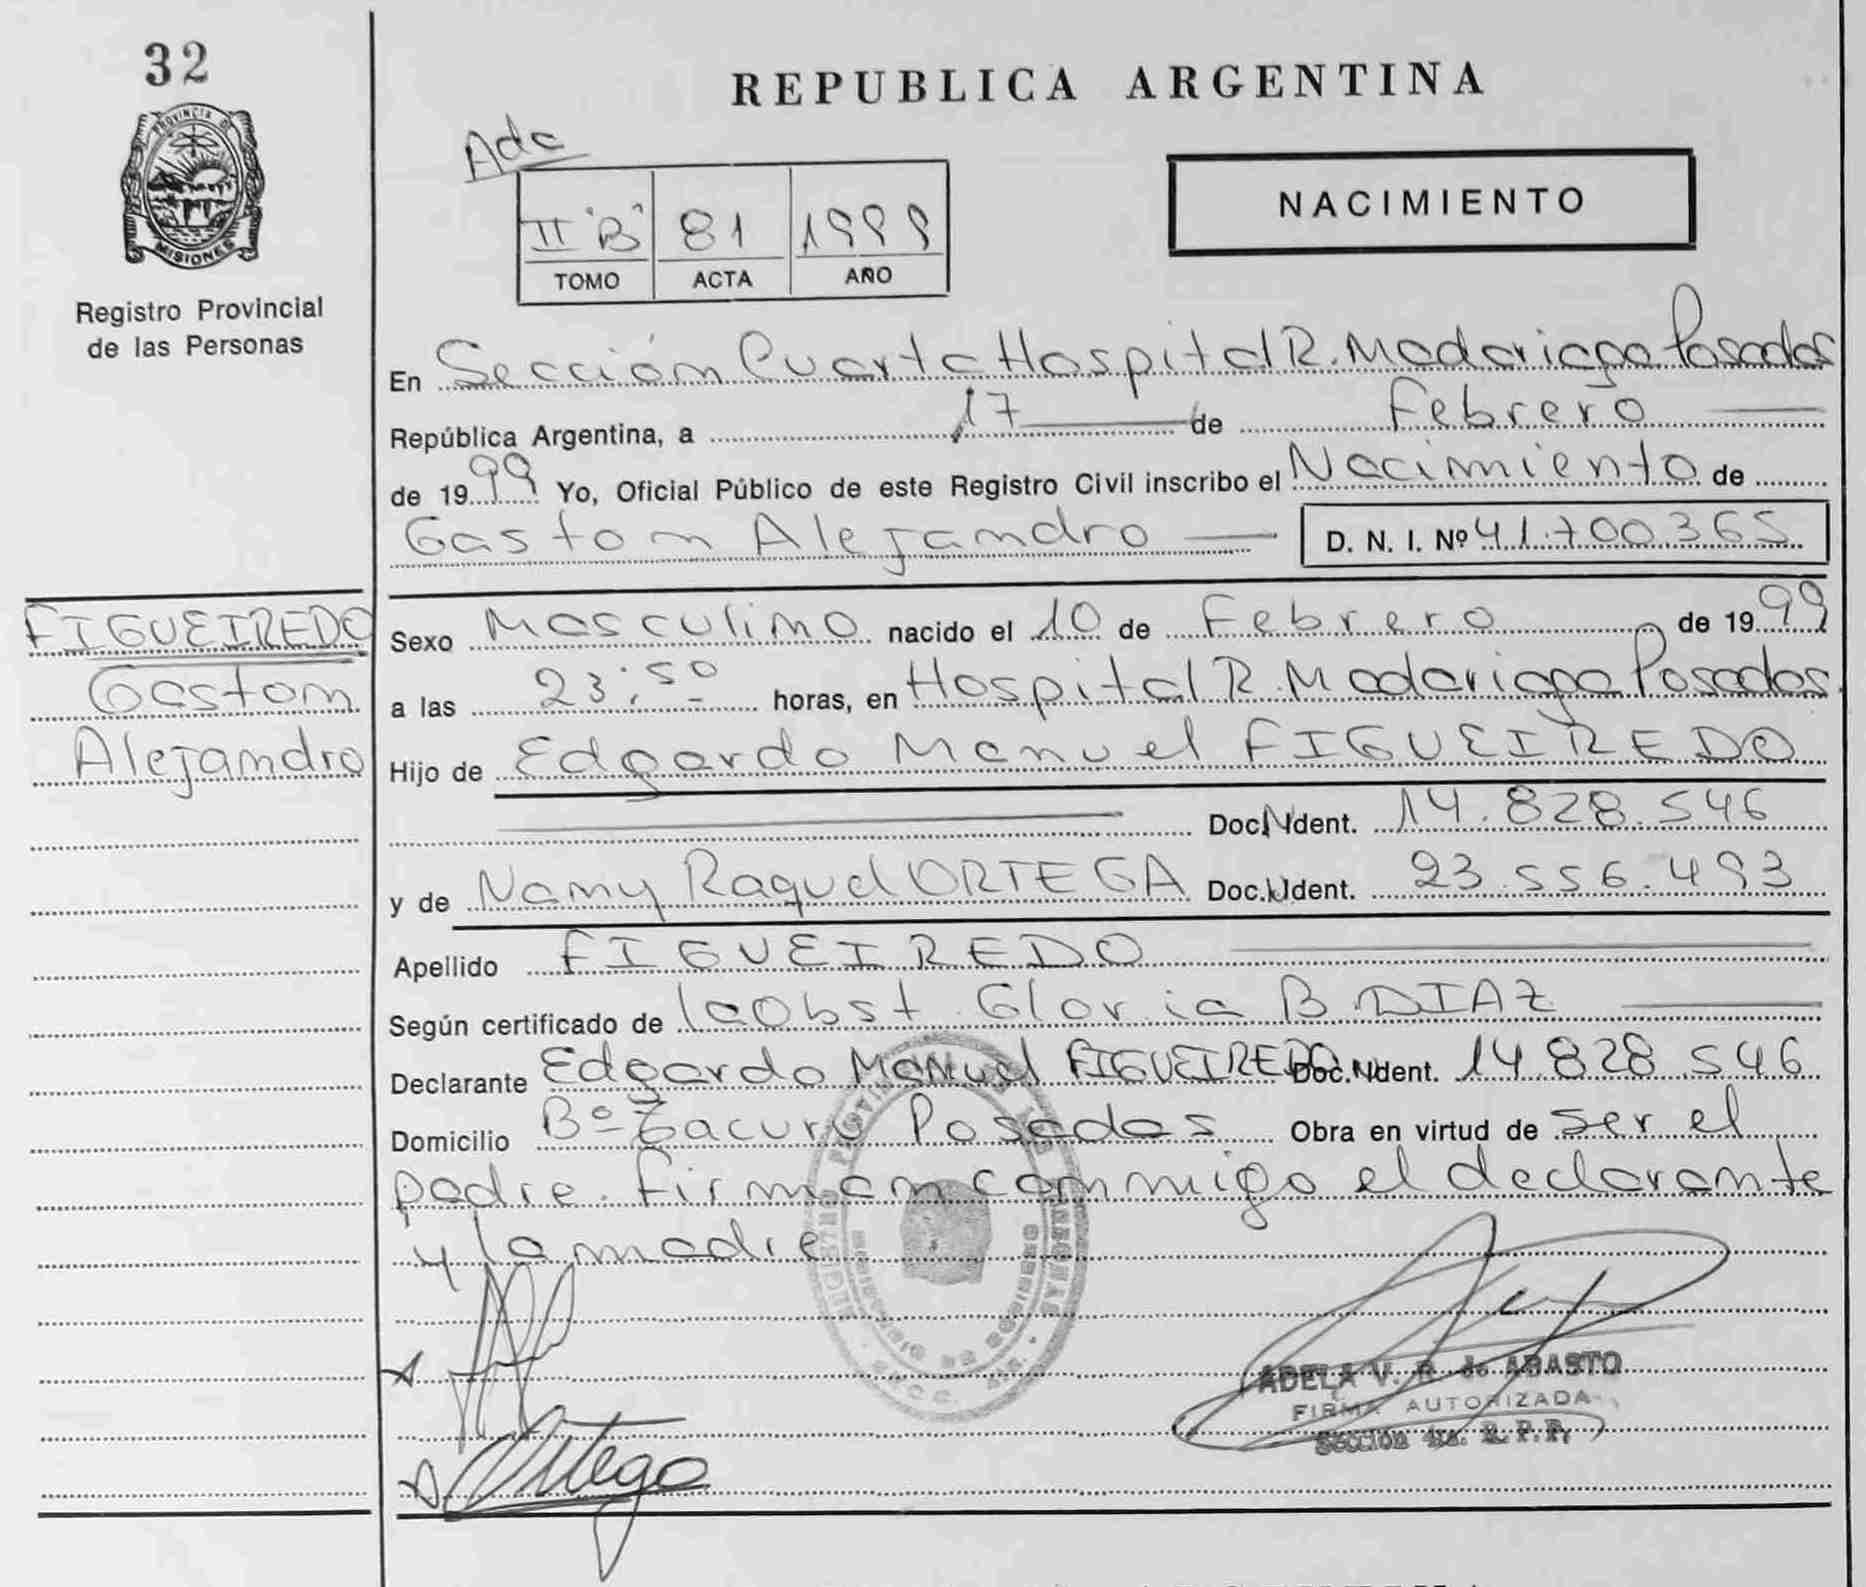 32
PROVINCIA DE
MISIONES
Registro Provincial
de las Personas
REPUBLICA ARGENTINA
Adc
II "B" 81 1999
TOMO ACTA AÑO
NACIMIENTO
En Sección Cuarta Hospital R. Madariaga Posadas
República Argentina, a 17 de Febrero
de 1999 Yo, Oficial Público de este Registro Civil inscribo el Nacimiento de
Gaston Alejandro D. N. I. Nº 41.700.365
FIGUEIREDO
Gaston
Alejandro
Sexo Masculino nacido el 10 de Febrero de 1999
a las 23:50 horas, en Hospital R. Madariaga Posadas.
Hijo de Edgardo Manuel FIGUEIREDO
Doc. Ident. 14.828.546
y de Nany Raquel ORTEGA Doc. Ident. 23.556.493
Apellido FIGUEIREDO
Según certificado de la Obst. Gloria B. DIAZ
Declarante Edgardo Manuel FIGUEIREDO Doc. Ident. 14.828.546
Domicilio Bº Tacurú Posadas Obra en virtud de ser el
padre. Firman conmigo el declarante
y la madre
REGISTRO PROVINCIAL DE LAS PERSONAS
Ortega
ADELA V. R. de ABASTO
FIRMA AUTORIZADA
Sección 4ta. R. P. P.